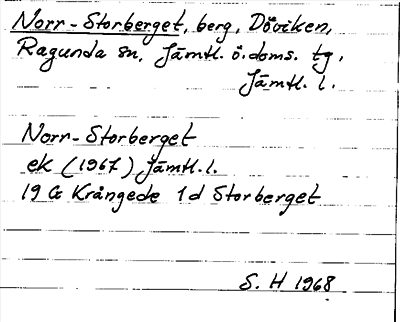 Norr-Storberget, berg, Döviken,
Ragunda sn, Jämtl. ö. doms. tg,
Jämtl. l.
Norr-Storberget
ek (1967) Jämtl. l.
19 G Krångede 1d Storberget
S. H 1968